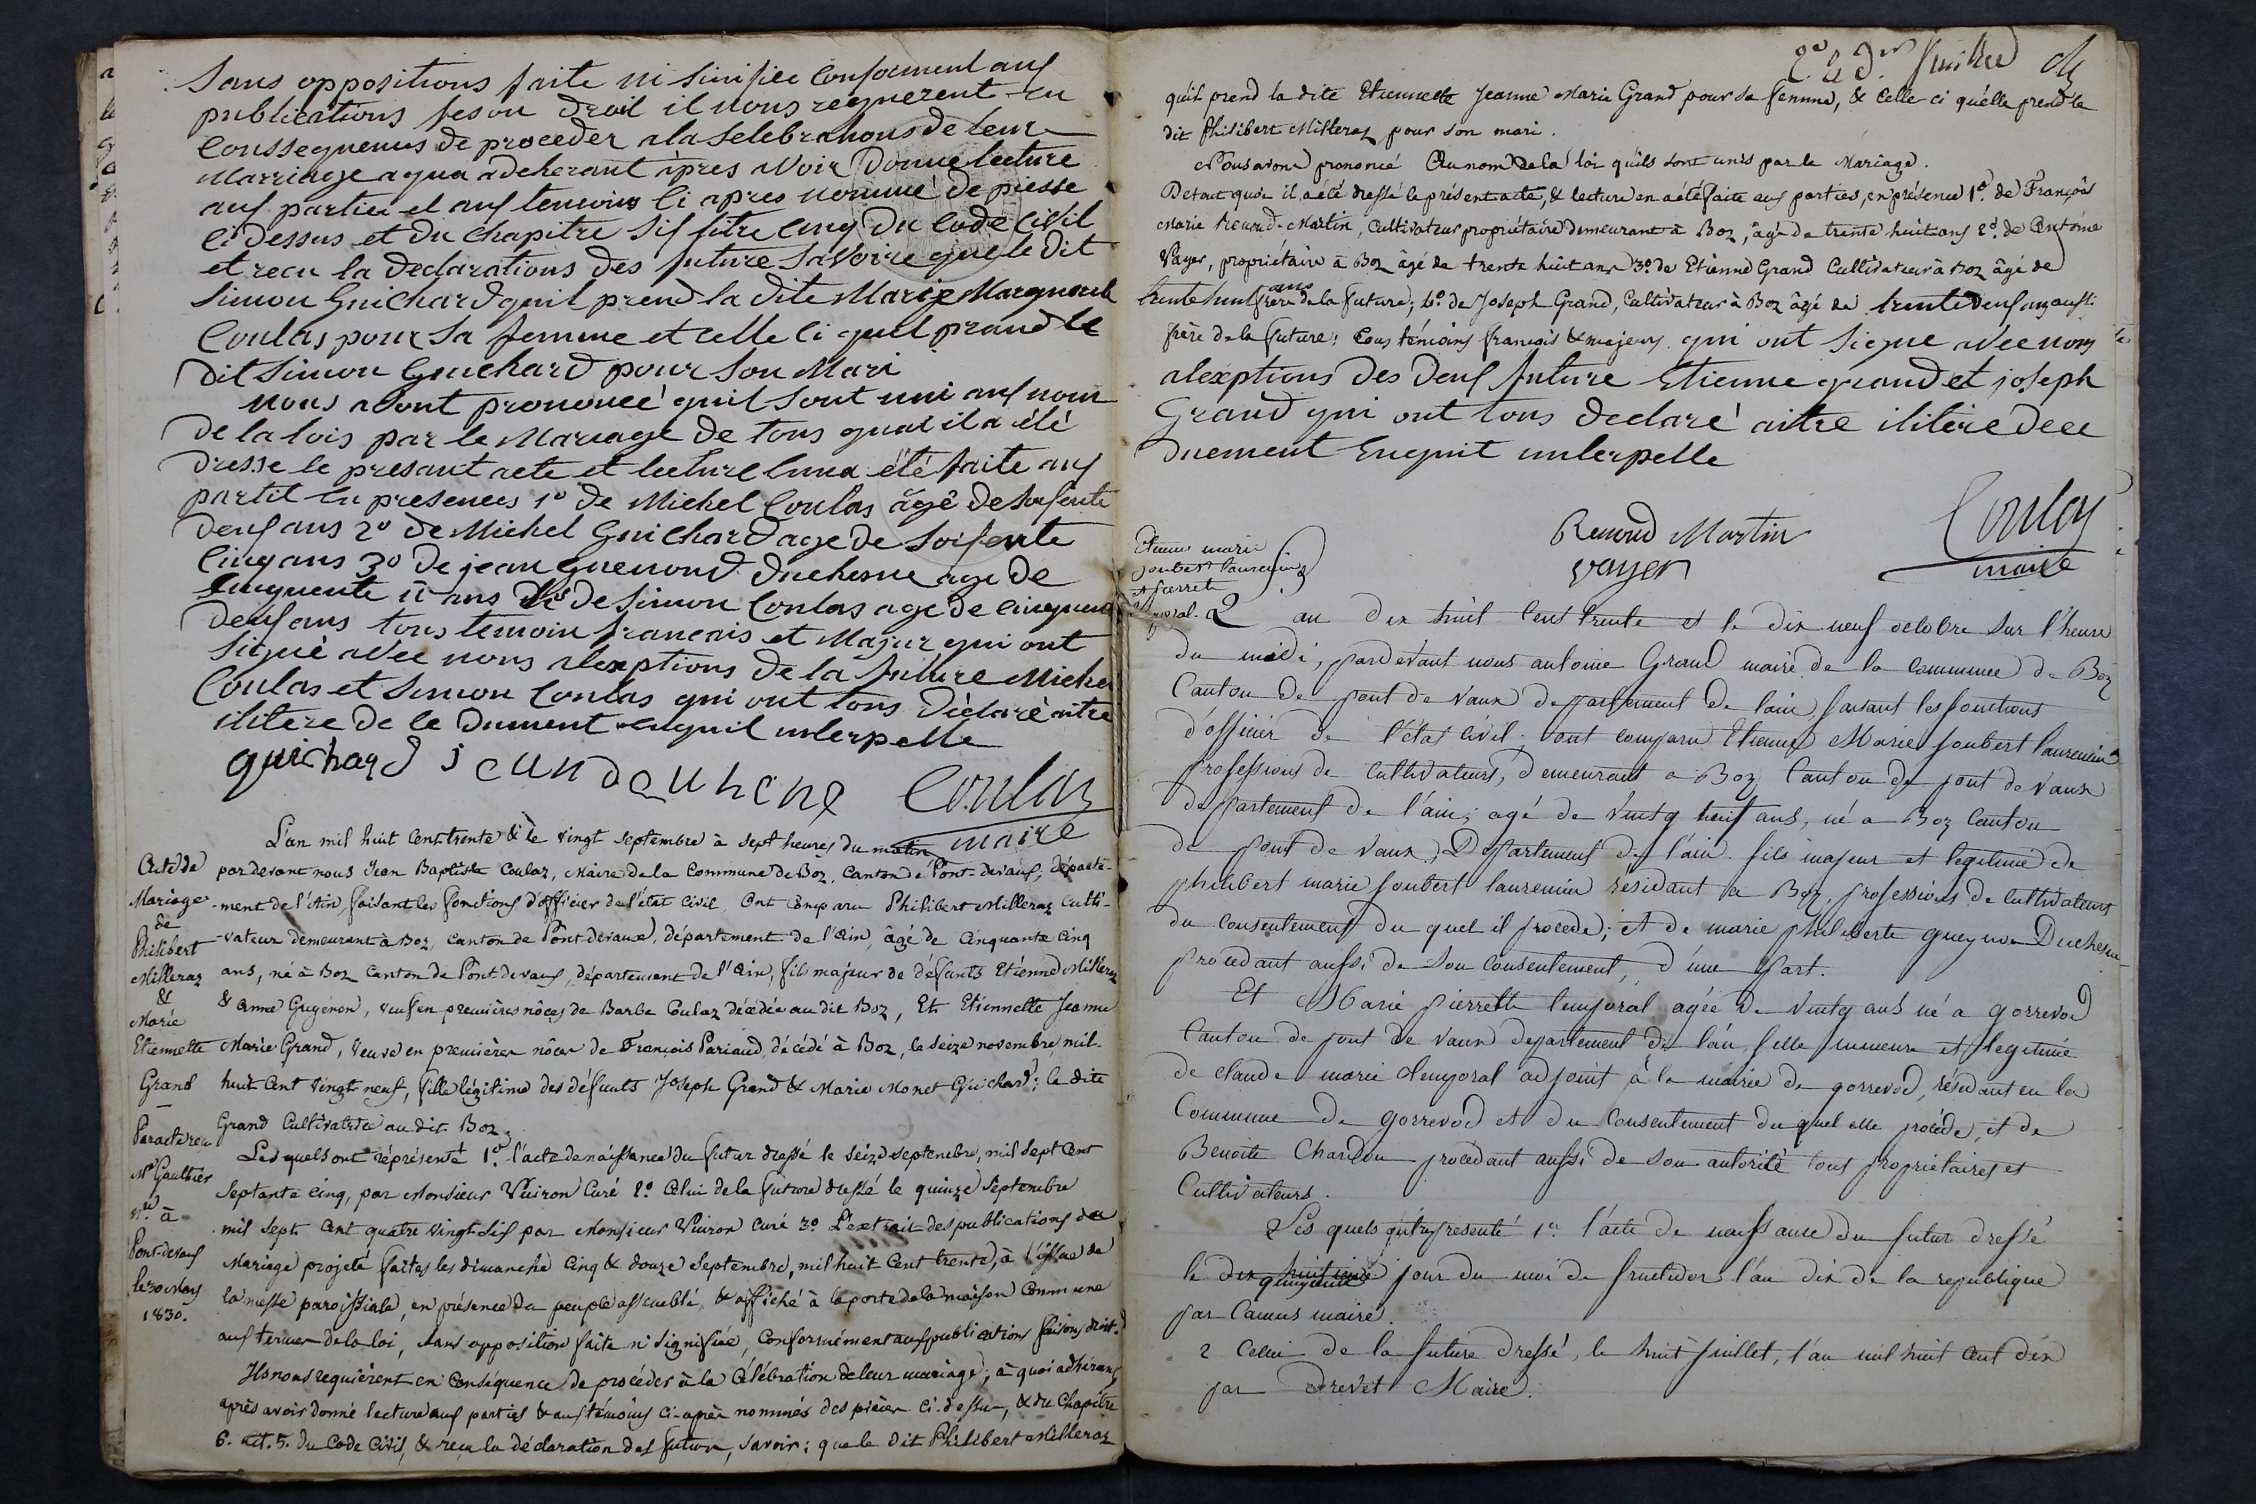 Sans oppositions faite ni sinifiee Conforment aux
publications feson droit il nous requerent en
Conssequenus de proceder a la Selebrations de leur
Marriage a qua adeherant àpres avoir Donne lecture
aux partier et aux temoins Ci apres nommé De piesse
Ci dessus et Du Chapitre Six titre Cinq Du Code Civil
et recu la Declarations Des future Savoire que le Dit
Simon Guichard quil prend la Dite Marie
Coulas pour Sa femme et Celle Ci quel prand le
Dit Simon Guichard pour Son Mari
Nous avont prononcé quil Sont uni aux nom
De la lois par le Mariage De tous quai il a été
Dresse le presant acte et lecture été faite aux
partit En presences 1º De Michel Coulas âgé De
Deux ans 2º De Michel Guichard age De Soisente
Cinq ans 3º De jean Guenond Duchesne age De
Cinquente ans De Simon Coulas age De Cinquente
Deux ans tous temoin francais et Majur qui ont
Signé avec nous alexptions De la future Michel
Coulas et Simon Coulas qui ont tous Déclaré aitre
ilitere De le Dument Enquit interpelle
guichard jean dauhene Coulaz
maire
L'an mil huit Cent trente & le vingt septembre à sept heures du matin
pardevant nous Jean Baptiste Coulaz, Maire de la Commune de Boz, Canton de Pont-devaux, départe-
-ment de l'Ain, faisant les fonctions d'officier de l'état Civil. Ont Comparu Philibert Milleraz Culti-
-vateur demeurant à Boz, Canton de Pont devaux, département de l'Ain, âgé de Cinquante Cinq
ans, né à Boz Canton de Pont devaux, département de l'Ain, fils majeur de défunts Etienne Milleraz
& Anne Guyenon, veuf en premières nôces de Barbe Coulaz décédée au dit Boz, Et Etiennette Jeanne
Marie Grand, Veuve en premières nôces de François Pariaud, décédé à Boz, le seize novembre mil-
huit Cent vingt neuf, fille légitime des défunts Joseph Grand & Marie Monet Guichard; la dite
Grand Cultivatrice au dit Boz.
Lesquels ont réprésenté 1º. l'acte de naissance du futur dressé le seize septembre, mil sept Cent
Septante Cinq, par Monsieur Vuiron Curé 2º. Celui de la future dressé le quinze Septembre
mil Sept Cent quatre vingt Six par Monsieur Vuiron Curé 3º L'extrait des publications de
Mariage projeté faites les dimanche Cinq & douze Septembre, mil huit Cent trente, à l'issue de
la messe paroissiale, en présence du peuple assemblé, & affiché à la porte de la maison Commune
aux termes de la loi, sans opposition faite ni signifiée, Conformément aux publications faisons droit.
Ils nous requièrent en Conséquence de procéder à la Célébration de leur mariage; à quoi adhérant
après avoir donné lecture aux parties & aux témoins Ci-après nommés des pièces Ci-dessus, & du Chapitre
6. tit. 5. du Code Civil, & reçu la déclaration des futurs, savoir: que le dit Philibert Milleraz
Acte de
Mariage
de
Philibert
Milleraz
&
Marie
Etiennette
Grand
—
Par acte reçu
Me Gaultier
nre à
Pont-devaux
le 30 May
1830.
feuillet
qu'il prend la dite Etiennette Jeanne Marie Grand pour Sa femme, & Celle ci qu'elle prend le
dit Philibert Milleraz pour son mari.
Nous avons prononcé Au nom de la loi qu'ils sont unis par le Mariage.
De tout quoi il a été dressé le présent acte, & lecture en a été faite aux parties, en présence 1º. de François
Marie Renoud-Martin, Cultivateur propriétaire demeurant à Boz, âgé de trente huit ans 2º. de Antoine
Vayer, propriétaire à Boz âgé de trente huit ans 3º. de Etienne Grand Cultivateur à Boz âgé de
ans
trente huit frère de la future; 4º. de Joseph Grand, Cultivateur à Boz âgé de trente deux ans aussi
frère de la future; tous témoins français & majeurs qui ont Signe avec nous
alexptions Des Deux future Etienne grand et joseph
Grand qui ont tous Declaré aitre ilitère De le
Duement Enquit interpelle
Renoud Martin Coulaz
vayer maire
Etienne marie
joubert laurencin
et Pierrette
temporal.
L an dix huit Cent trente et le dix neuf octobre Sur l'heure
du midi, pardevant nous antoine Grand maire de la Commune de Boz
Canton de pont de Vaux departement de l'ain, faisant les fonctions
d'officier de l'état Civil, ont Comparu Etienne Marie joubert laurencin
professions de Cultivateurs, demeurant a Boz Canton de pont de Vaux
departement de l'ain; agé de Vintg huit ans, né a Boz Canton
de pont de Vaux, Departement de l'ain. fils majeur et legitime de
philibert marie joubert laurencin residant a Boz, professions de Cultivateurs
du Consentement du quel il procede; Et de marie philiberte gueynon Duchesne
procedant aussi de Son Consentement, d'une part.
Et Marie pierrette temporal agée de Vintg ans né a gorrevod
Canton de pont de Vaux departement de l'ain, fille mineure et legitime
de claude marie temporal adjoint à la mairie de gorrevod, résidant en la
Commune de gorrevod et du Consentement du quel elle procède, et de
Benoite Chardon procédant aussi de Son autorité tous propriétaires et
Cultivateurs.
Les quels ont représenté 1er. l'acte de naissance du futur dressé
le dix huitieme jour du moi de fructidor l'an dix de la republique
quinzieme
par Camus maire.
2 Celui de la future dressé, le huit juillet, l'an mil huit Cent dix
par Drevet Maire.